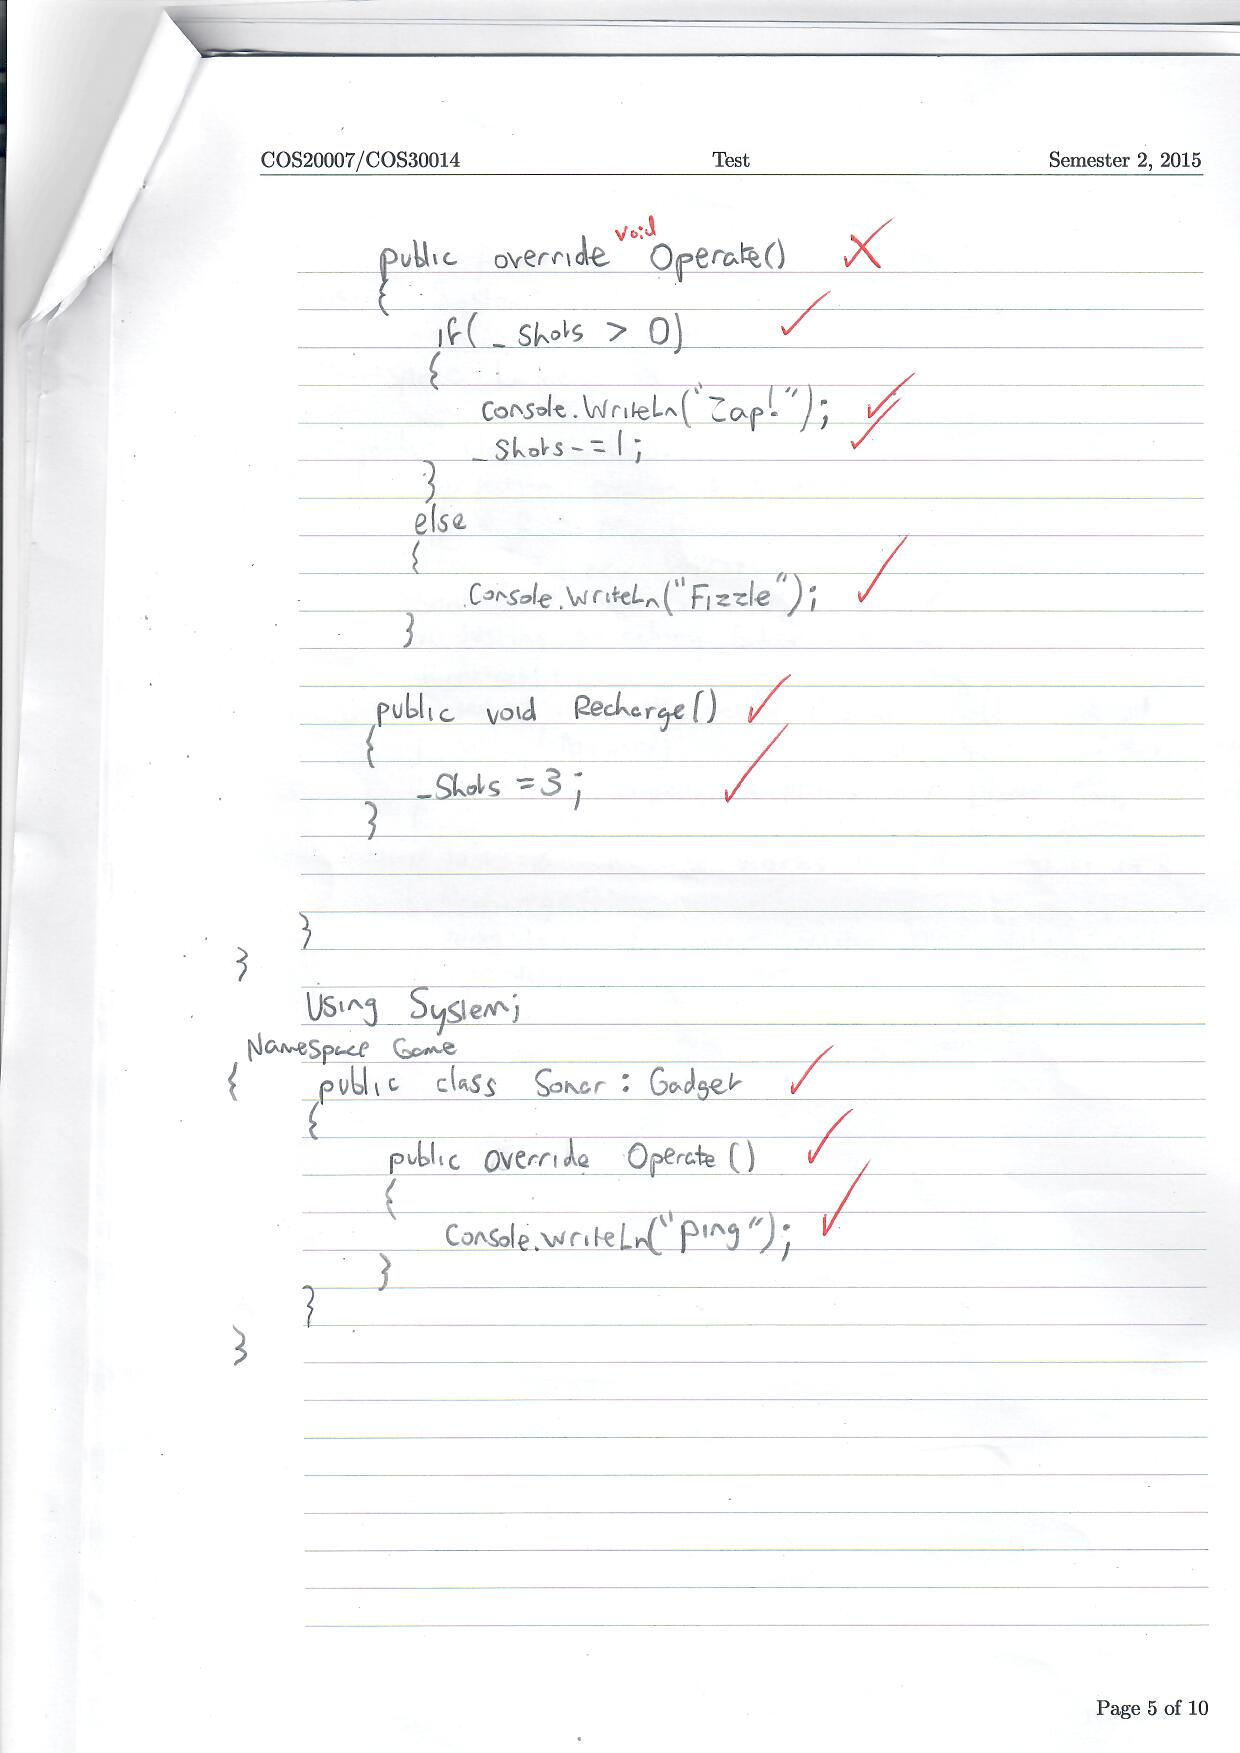 COS20007/COS30014 Test Semester 2, 2015
void
public override Operate()
{
if( _Shots > 0)
{
Console.WriteLn("Zap!");
_Shots-=1;
}
else
{
Console.WriteLn("Fizzle");
}
public void Recharge()
{
_Shots = 3;
}
}
}
Using System;
Namespace Game
{ public class Sonar : Gadget
{
public override Operate ()
{
Console.writeLn("ping");
}
}
}
Page 5 of 10